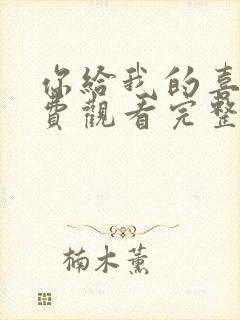 你給我的喜
費觀看完整
楠木薰